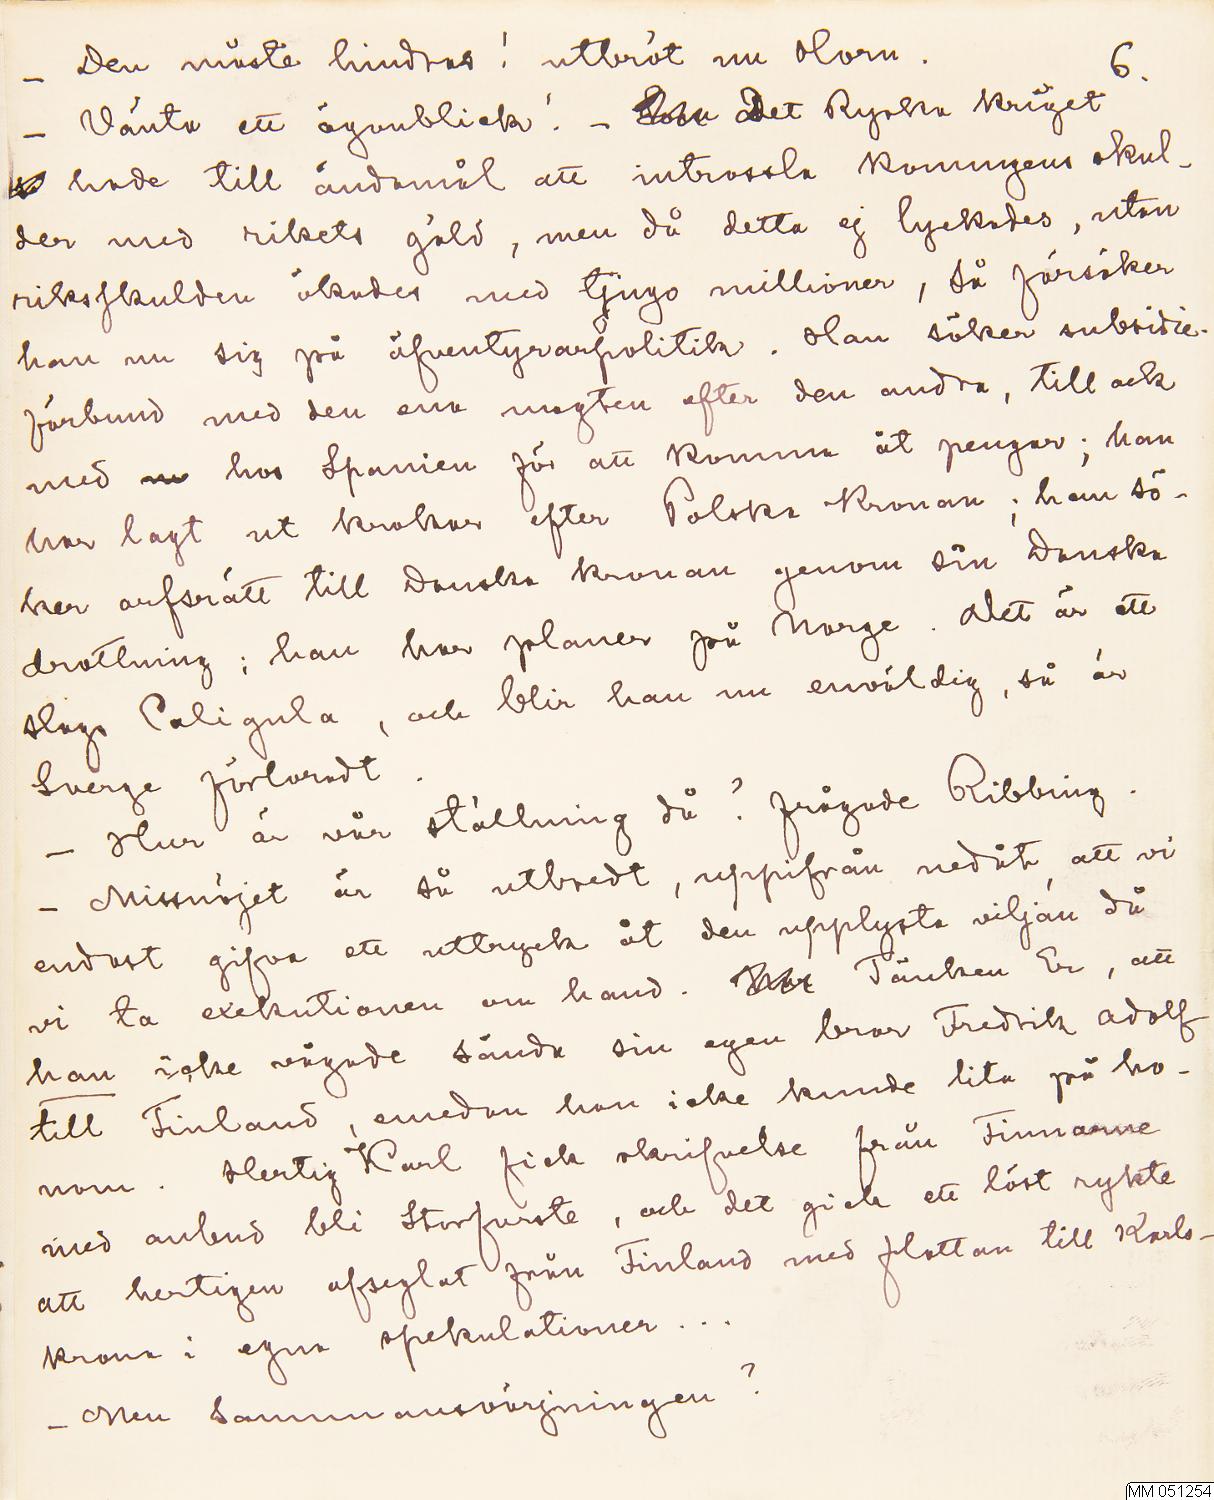 6.
– Den måste hindras! utbröt nu Horn.
– Vänta ett ögonblick! – Det Ryska kriget
hade till ändamål att intrassla Konungens skul-
der med rikets gäld, men då detta ej lyckades, utan
riksskulden ökades med tjugo millioner, så försöker
han nu sig på äfventyrarpolitik. Han söker subsidie-
förbund med den ena magten efter den andra, till och
med hos Spanien för att komma åt pengar; han
har lagt ut krokar efter Polska Kronan; han sö-
ker arfsrätt till Danska kronan genom sin Danska
drottning; han har planer på Norge. Det är ett
slags Caligula, och blir han nu enväldig, så är
Sverge förloradt.
– Hur är vår ställning då? frågade Ribbing.
– Missnöjet är så utbredt, uppifrån nedåt, att vi
endast gifva ett uttryck åt den upplysta viljan då
vi ta exekutionen om hand. Tänken Er, att
han icke vågade sända sin egen bror Fredrik Adolf
till Finland, emedan han icke kunde lita på ho-
nom. Hertig Karl fick skrifvelse från Finnarne
med anbud bli Storfurste, och det gick ett löst rykte
att hertigen afseglat från Finland med flottan till Karls-
krona i egna spekulationer...
– Men Sammansvärjningen?
MM 051254